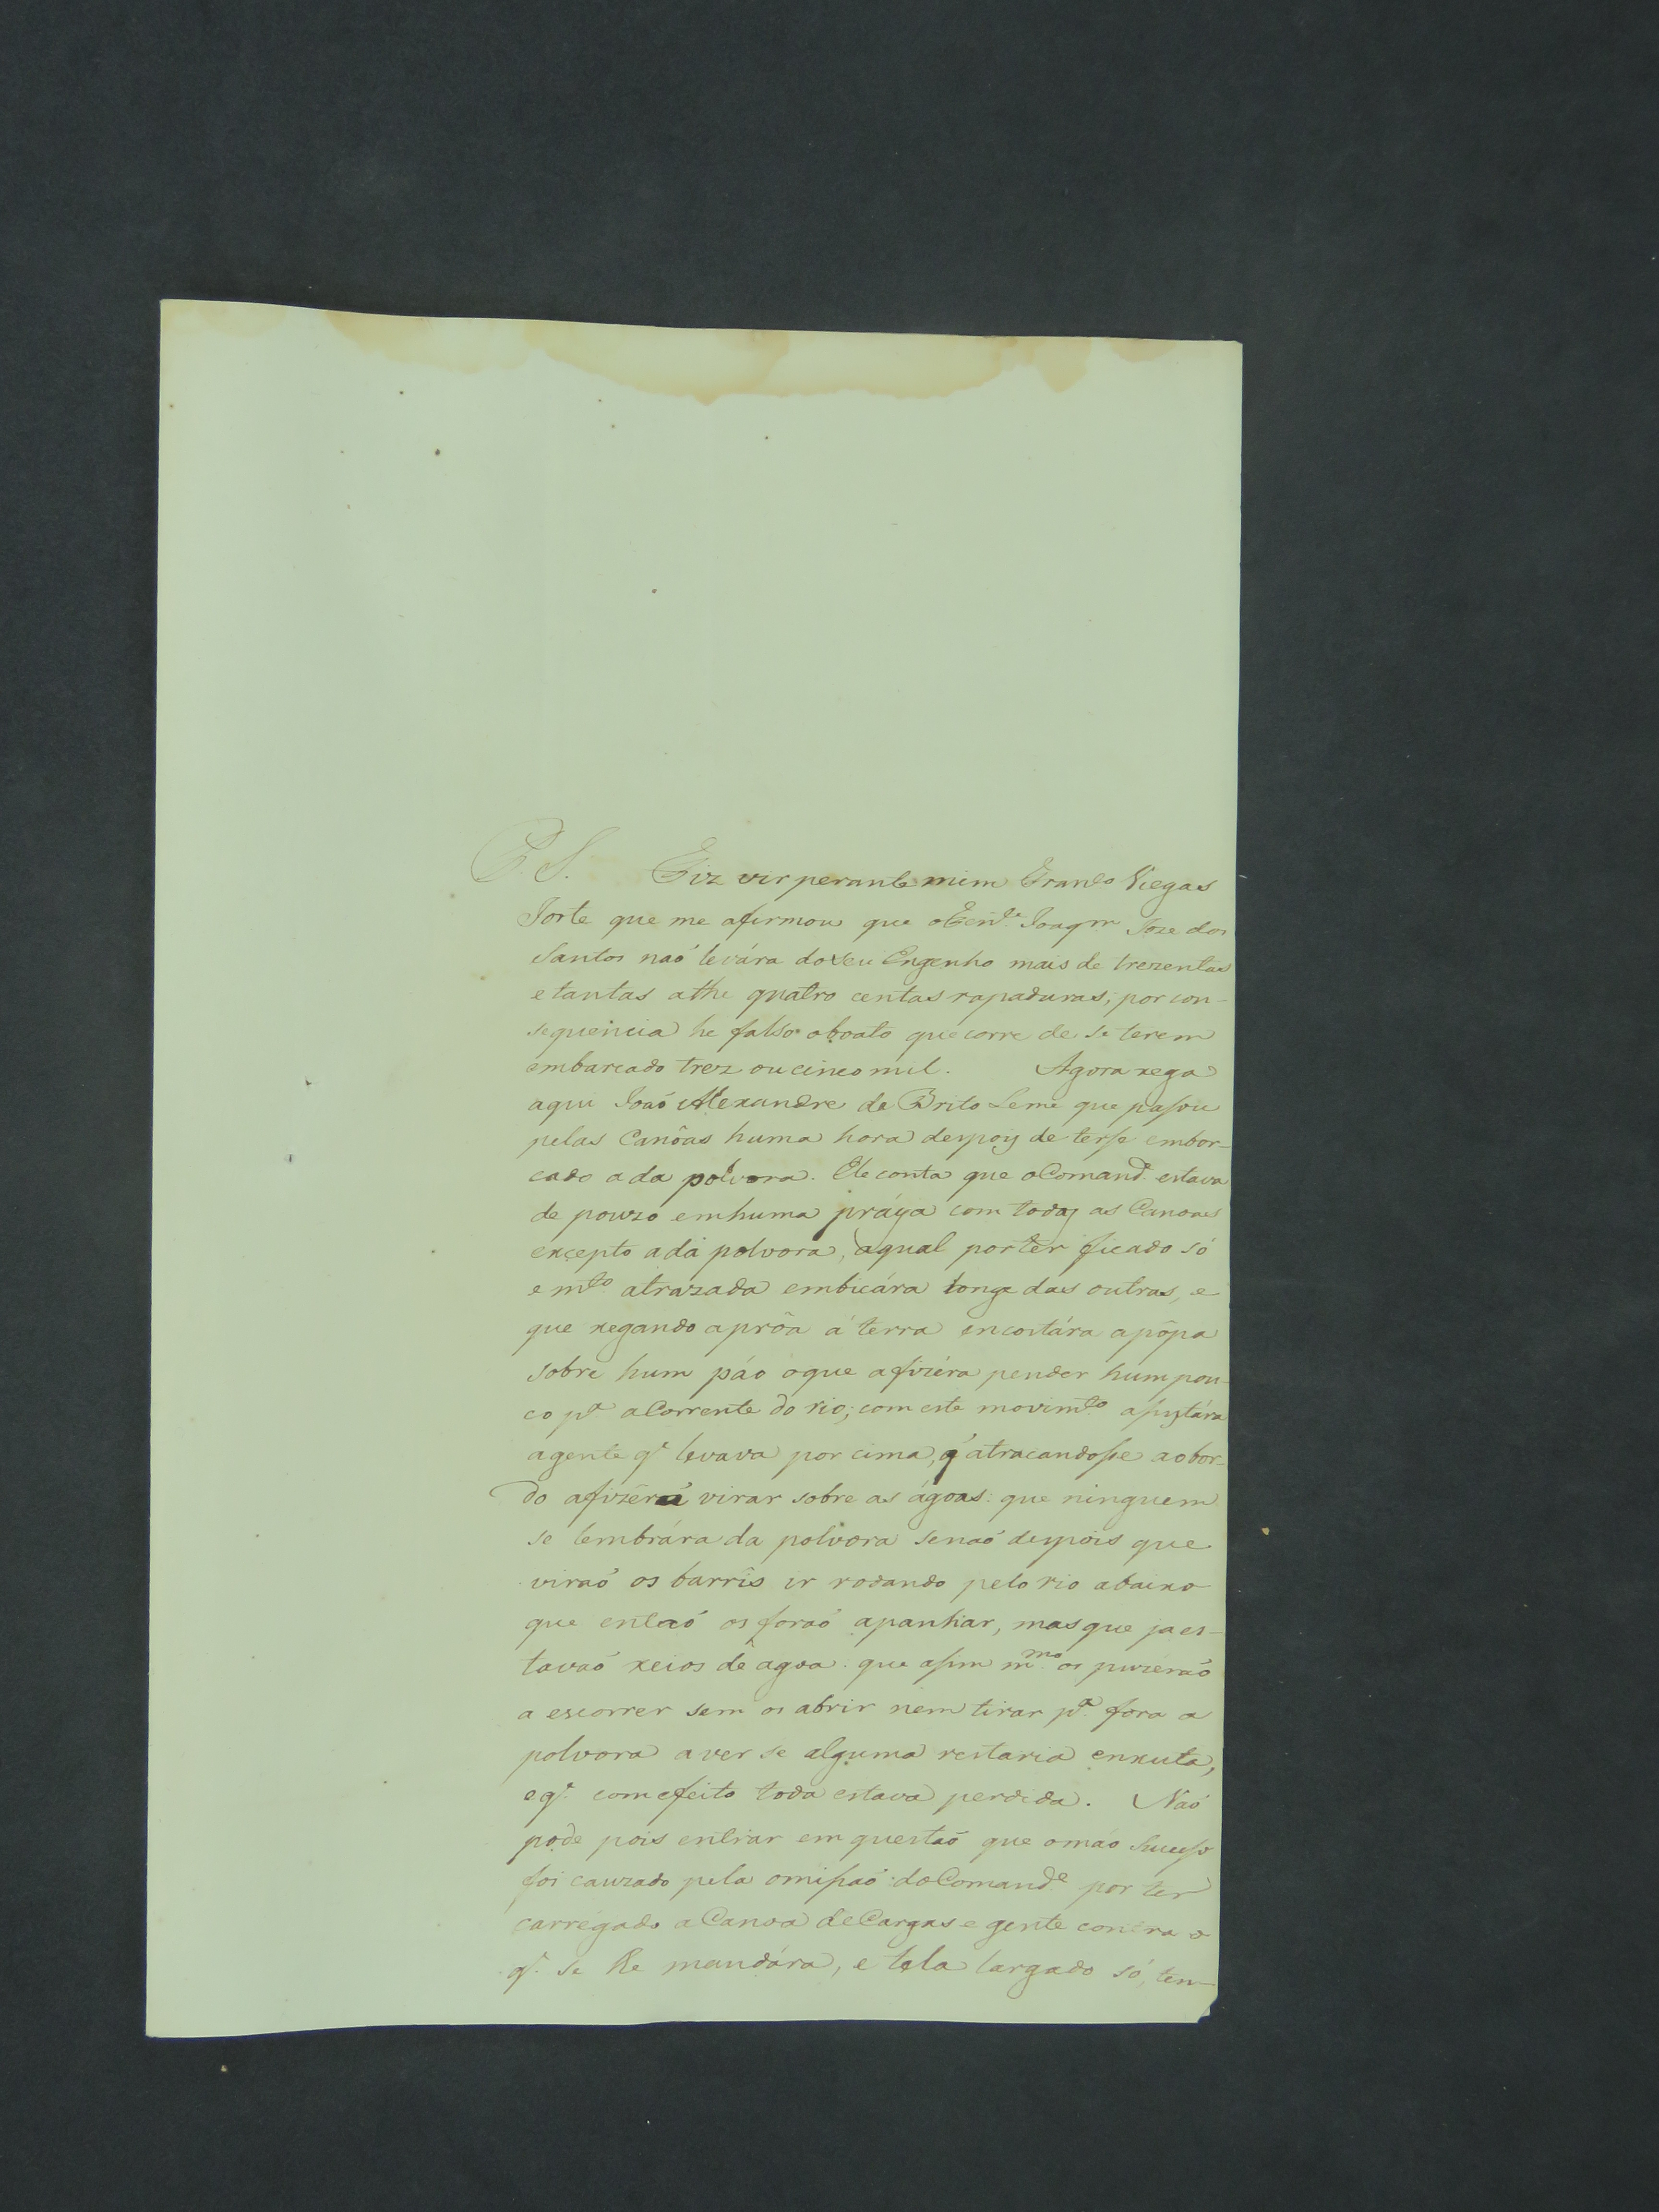 P. S. Fiz vir perante mim Franco Viegas
Jorte que me afirmou que o Tene Joaqm Joze dos
Santos naõ levára do seu Engenho mais de trezentas
e tantas athe quatro centas rapaduras; por con-
sequencia he falso o boato que corre de se terem
embarcado trez ou cinco mil. Agora xega
aqui Joaõ Alexandre de Brito Leme que pasou
pelas Canôas huma hora despoiz de terse embor-
cado a da polvora. Ele conta que o Comande estava
de pouzo em huma práya com todas as Canoas
excepto a da polvora, a qual por ter ficado só
e mto atrazada embicára longe das outras, e
que xegando a prôa á terra encostára a pôpa
sobre hum páo o que a fizéra pender hum pou-
co pa a Corrente do rio; com este movimto asustára
a gente qe levava por cima, q̃ atracandose ao bor-
do a fizéraõ virar sobre as ágoas: que ninguem
se lembrára da polvora senaõ depois que
viraõ os barrîs ir rodando pelo rio abaixo
que entaõ os foraõ apanhar, mas que ja es-
tavaõ xeios de agoa: que asim mmo os puzeraõ
a escorrer sem os abrir nem tirar pa fora a
polvora a ver se alguma restaria enxuta,
e qe com efeito toda estava perdida. Naõ
pode pois entrar em questaõ que o máo Suceso
foi cauzado pela omisaõ do Comande por ter
carregado a Canoa de Cargas e gente contra o
qe se lhe mandára, e tela largado só, ten-